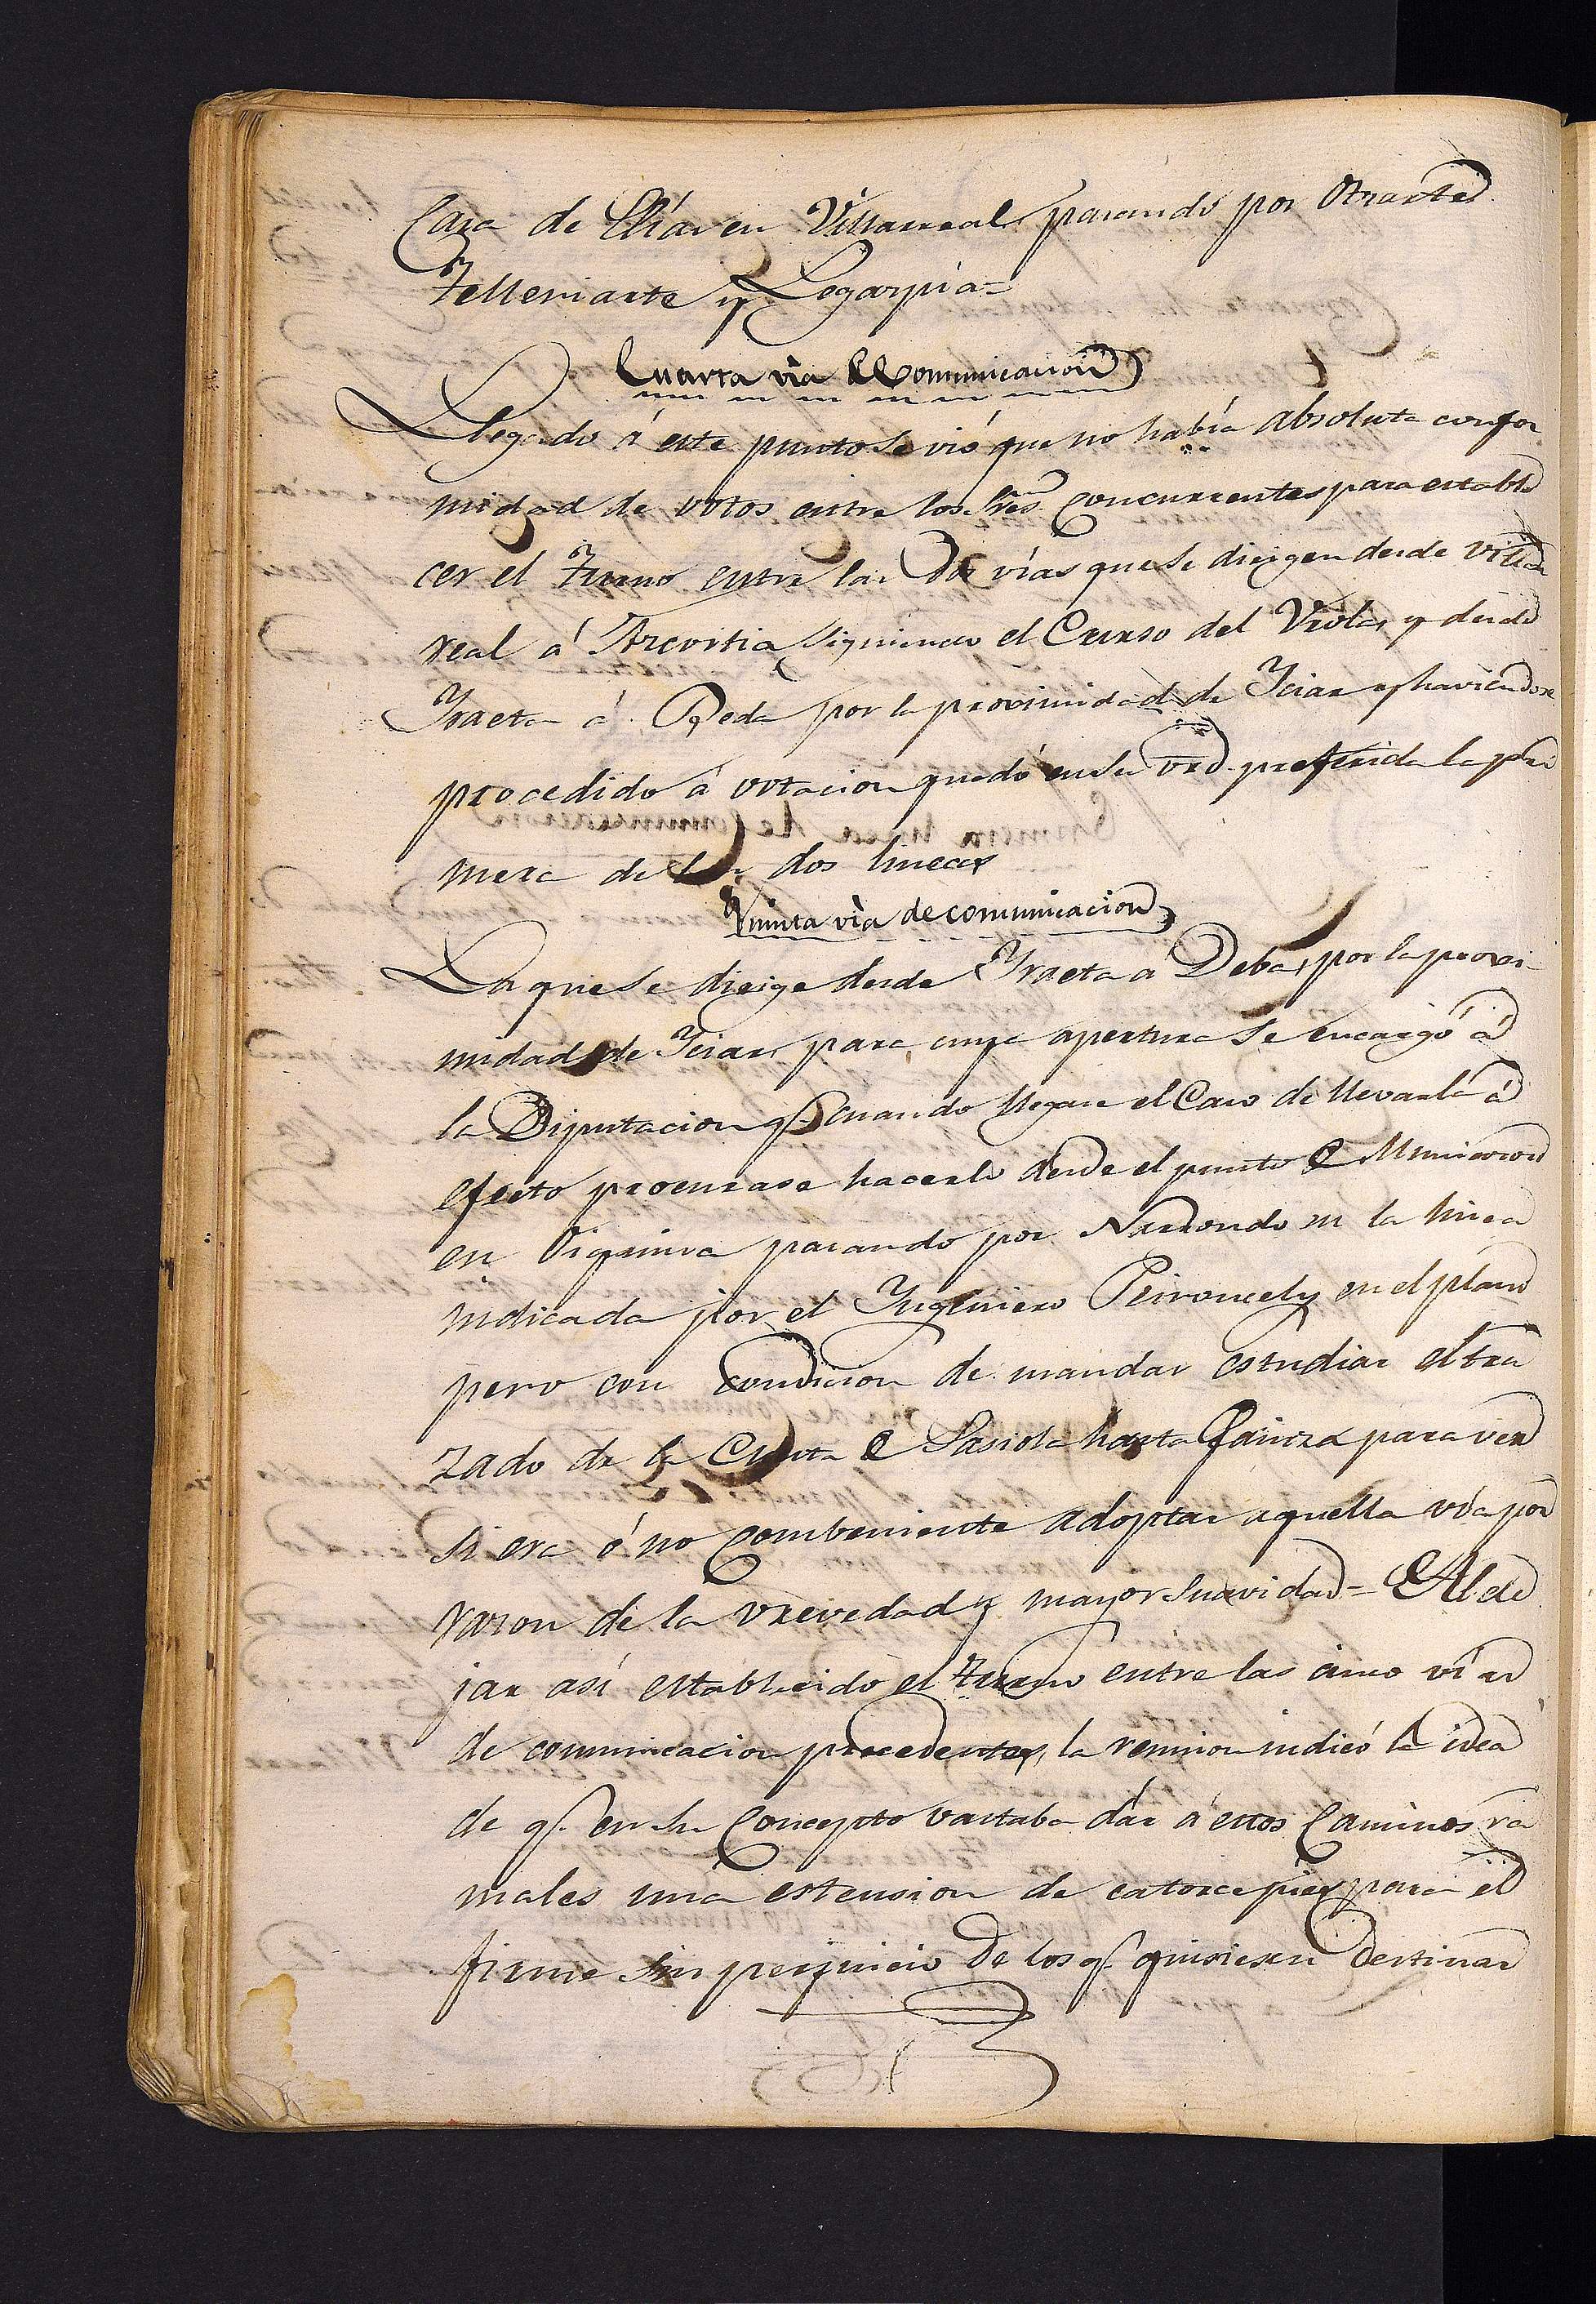 Casa de Elias en Villarreal, pasando por Otzarte
Telleriarte y Legazpia=
Cuarta via de Comunicacion
Llegado á este punto se vió que no había absoluta confor
midad de votos entre los Sres. Concurrentes para estable
cer el turno entre las dos vías que se dirigen desde Villar
real á Azcoitia siguiendo el Curso del Urola, y desde
Yraeta á Deda por la proximidad de Yciar y haviendose
procedido á votacion quedó en su vrd. preferida la pri
mera de las dos lineas
Quinta via de comunicacion
La que se dirige desde Yraeta á Deba, por la proxi
midad de Yciar, para cuya apertura se encargó á
la Diputacion q. cuando llegare el Caso de llevarla á
efecto procurase hacerlo desde el punto de Municoron
en Oiquina pasando por Narrondo en la linea
indicada por el Yngeniero Peironcely en el plano
pero con condicion de mandar estudiar el tra
zado de la Cuesta de Sasiola hasta para ver
si era ó no combeniente adoptar aquella vía por
razon de la vrevedad y mayor suavidad= Al de
jar así establecido el turno entre las cinco vías
de comunicacion precedentes, la reunion indicó la idea
de q. en su Concepto vastaba dár á estos Caminos ra
males una estension de catorce pies para el
firme sin perjuicio de los q. quisiesen destinar